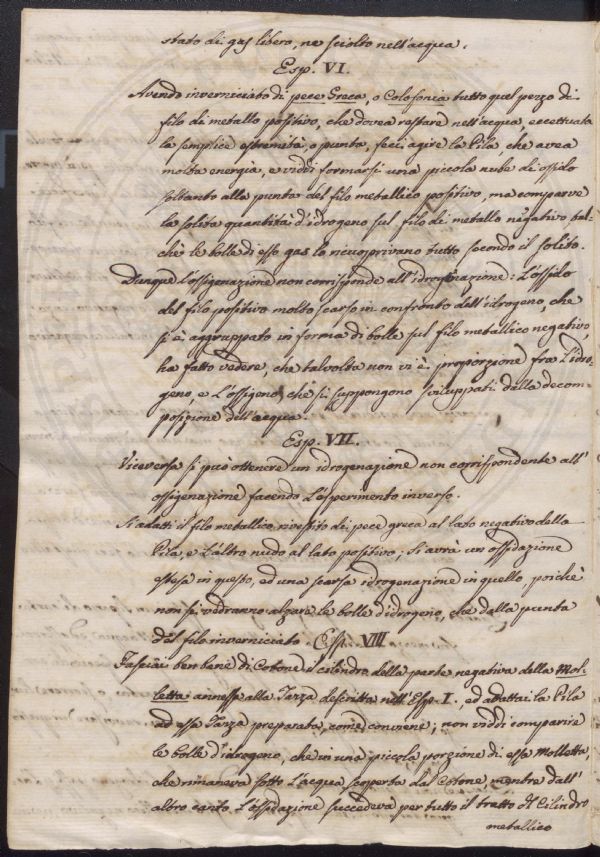 stato di gas libero, ne sciolto nell'acqua.
Esp. VI.
Avendo inverniciato di pece Greca, o Colofonia tutto quel pezzo di
filo di metallo positivo, che dovea restare nell'acqua, eccettuata
la semplice estremità, o punta, feci agire la Pila, che avea
molta energia, e viddi formarsi una piccola nube di ossido
soltanto alla punta del filo metallico positivo, ma comparve
la solita quantità d'idrogeno sul filo di metallo negativo tal-
chè le bolle di esso gas lo ricuoprivano tutto secondo il solito.
Dunque l'ossigenazione non corrisponde all'idrogenazione: L'ossido
del filo positivo molto scarso in confronto dell'idrogeno, che
si è aggruppato in forma di bolle sul filo metallico negativo,
ha fatto vedere, che talvolta non vi è proporzione fra l'idro-
geno, e l'ossigeno, che si suppongono sviluppati dalla decom-
posizione dell'acqua.
Esp. VII.
Viceversa si può ottenere un idrogenazione non corrispondente all'
ossigenazione facendo l'esperimento inverso.
Si adatti il filo metallico rivestito di pece greca al lato negativo della
Pila, e l'altro nudo al lato positivo; si avrà un ossidazione
estesa in questo, ed una scarsa idrogenazione in quello, poichè
non si vedranno alzare le bolle d'idrogeno, che dalla punta
del filo inverniciato. Esp. VIII
Fasciai ben bene di Cotone il cilindro della parte negativa della Mol-
letta annessa alla Tazza descritta nell'Esp. I., ed adattai la Pila
ad essa Tazza preparata, come conviene; non viddi comparire
le bolle d'idrogeno, che in una piccola porzione di essa Molletta
che rimaneva sotto l'acqua scoperta dal Cotone, mentre dall'
altro canto l'ossidazione succedeva per tutto il tratto del Cilindro
metallico